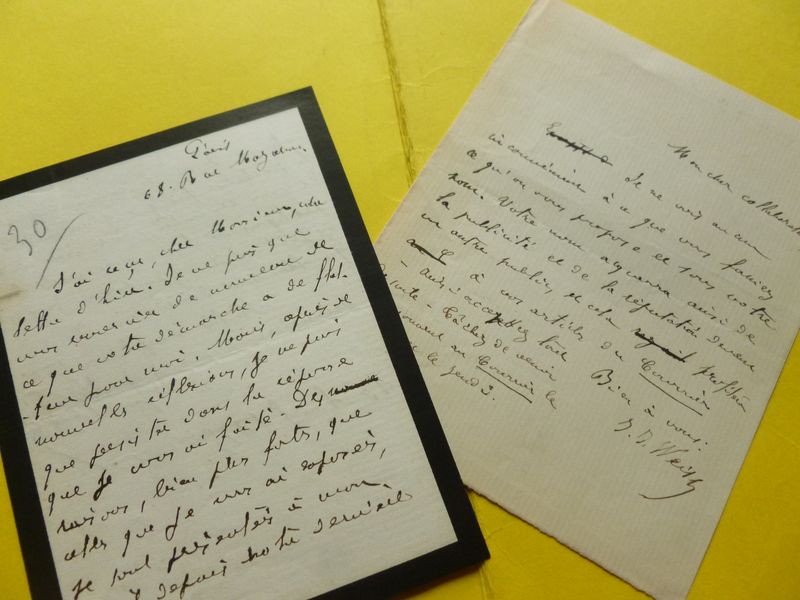 Paris
68. Rue Mazarine
30
J'ai reçu, cher Monsieur, votre
lettre d'hier. Je ne puis que
vous remercier de nouveau de
ce que votre démarche a de flat-
-teur pour moi. Mais, après de
nouvelles réflexions, je ne puis
que persister dans la réponse
que je vous ai faite. Des
raisons, bien plus fortes, que
celles que je vous ai exposées,
se sont présentées à mon
depuis notre dernière
Mon cher collaborateur
Je ne vois aucun
inconvénient à ce que vous fassiez
ce qu'on vous propose et sous votre
nom. Votre nom acquerra ainsi de
la publicité et de la réputation devant
un autre public, et cela profitera
à vos articles du Courrier
- Ainsi acceptez tout
de suite - Tâchez de venir
au Courrier le
le jeudi.
Bien à vous.
J. J. Weiss